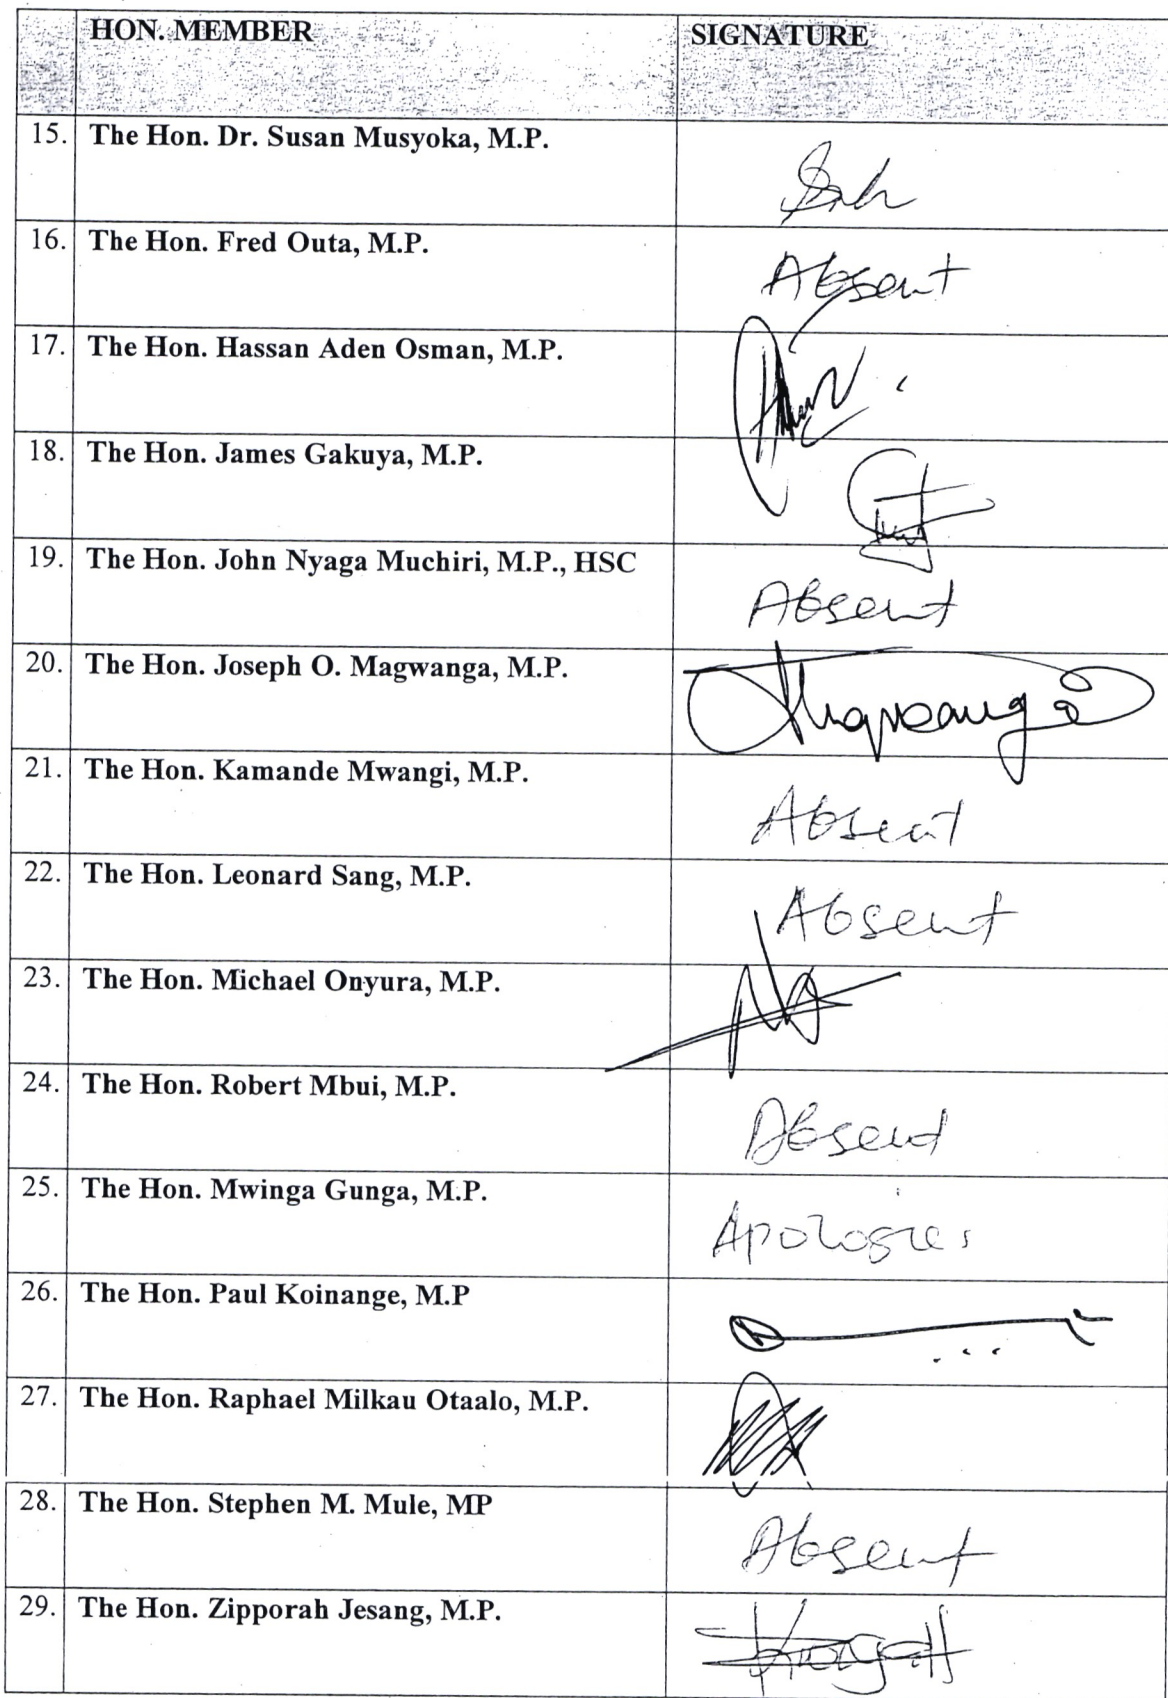 HON. MEMBER SIGNATURE
15. The Hon. Dr. Susan Musyoka, M.P.
16. The Hon. Fred Outa, M.P. Absent
17. The Hon. Hassan Aden Osman, M.P.
18. The Hon. James Gakuya, M.P.
19. The Hon. John Nyaga Muchiri, M.P., HSC Absent
20. The Hon. Joseph O. Magwanga, M.P.
21. The Hon. Kamande Mwangi, M.P. Absent
22. The Hon. Leonard Sang, M.P. Absent
23. The Hon. Michael Onyura, M.P.
24. The Hon. Robert Mbui, M.P. Absent
25. The Hon. Mwinga Gunga, M.P. Apologies
26. The Hon. Paul Koinange, M.P
27. The Hon. Raphael Milkau Otaalo, M.P.
28. The Hon. Stephen M. Mule, MP Absent
29. The Hon. Zipporah Jesang, M.P.